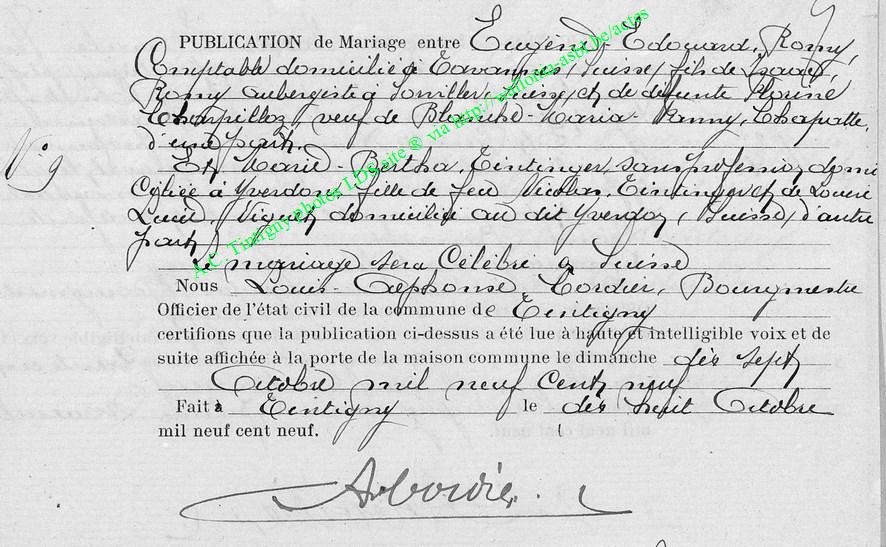 PUBLICATION de Mariage entre Eugène-Edouard, Romy,
Comptable domicilié à Tavannes, (Suisse) fils de Isaac,
Romy aubergiste à Sonviller, (Suisse) et de defunte Florine
Charpilloz, veuf de Blanche-Maria-Fanny, Chapatte,
d'une part.
N: 9
Et Marie-Bertha, Tintinger, sans profession, domi
ciliée à Yverdon, fille de feu Nicolas, Tintinger et de Louise
Lucie, Viguet, domiciliée au dit Yverdon, (Suisse) d'autre
part,
Le mariage sera Célébré à Suisse
Nous Louis-Alphonse Cordier, Bourgmestre
Officier de l'état civil de la commune de Tintigny
certifions que la publication ci-dessus a été lue à haute et intelligible voix et de
suite affichée à la porte de la maison commune le dimanche dès sept
Octobre mil neuf cent neuf
Fait à Tintigny le dès huit Octobre
mil neuf cent neuf.
A. Cordier
A.C. Tintigny photos LDS site ® via http://wallonia-asbl.be/actes